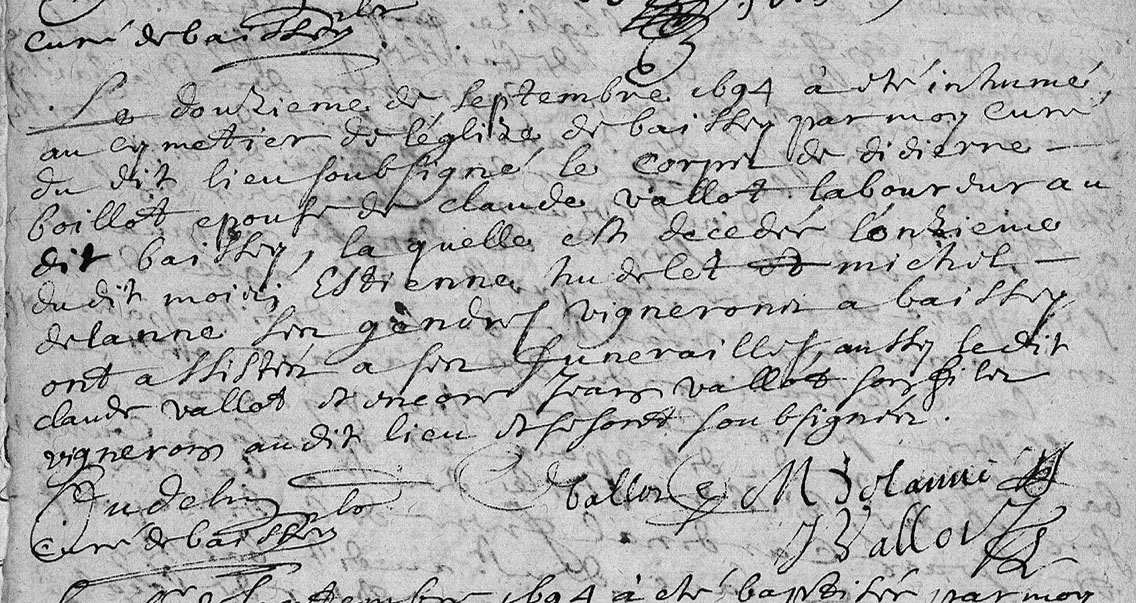 curé de baissey
Le douzieme de Septembre 1694 à eté inhumé,
au cymetier de l'églize de baissey par moy Curé
du dit lieu soubsigné le corps de didierne
boillot epouse de claude vallot labourdur au
dit baissey, la quelle est décedée l'onzieme
du dit mois, Estienne hudelet et michel
delanne ses gendres vignerons a baissey
ont assistés a ses funerailles, aussy ledit
claude vallot et encore Jean vallot son fils
vigneron audit lieu et se sont soubsignés.
vallot M delanne
curé de baissey
J Vallot
Septembre 1694 à eté baptisée par moy